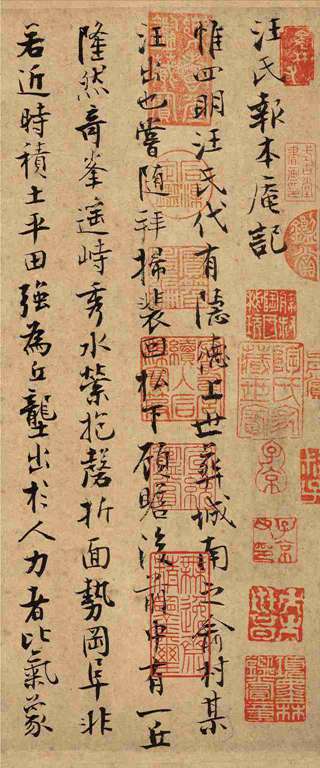 汪氏報本庵記
惟四明汪氏代有隱德上世葬城南之俞村某
汪出也嘗隨拜掃裴回松下顧瞻後前中有一丘
隆然奇峯遥峙秀水縈抱磬折面勢岡阜非
若近時積土平田強為丘壟出於人力者比氣象
子京